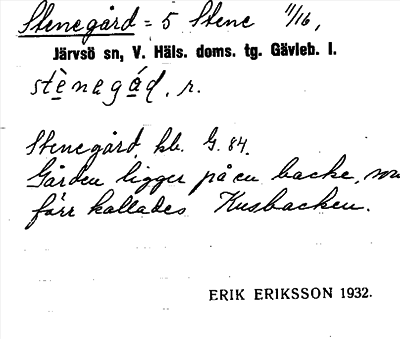 Stenegård = 5 Stene 11/16,
Järvsö sn, V. Häls. doms. tg. Gävleb. l.
stènegád, r.
Stenegård, hb. G. 84.
Gården ligger på en backe, som
förr kallades Kusbacken.
ERIK ERIKSSON 1932.